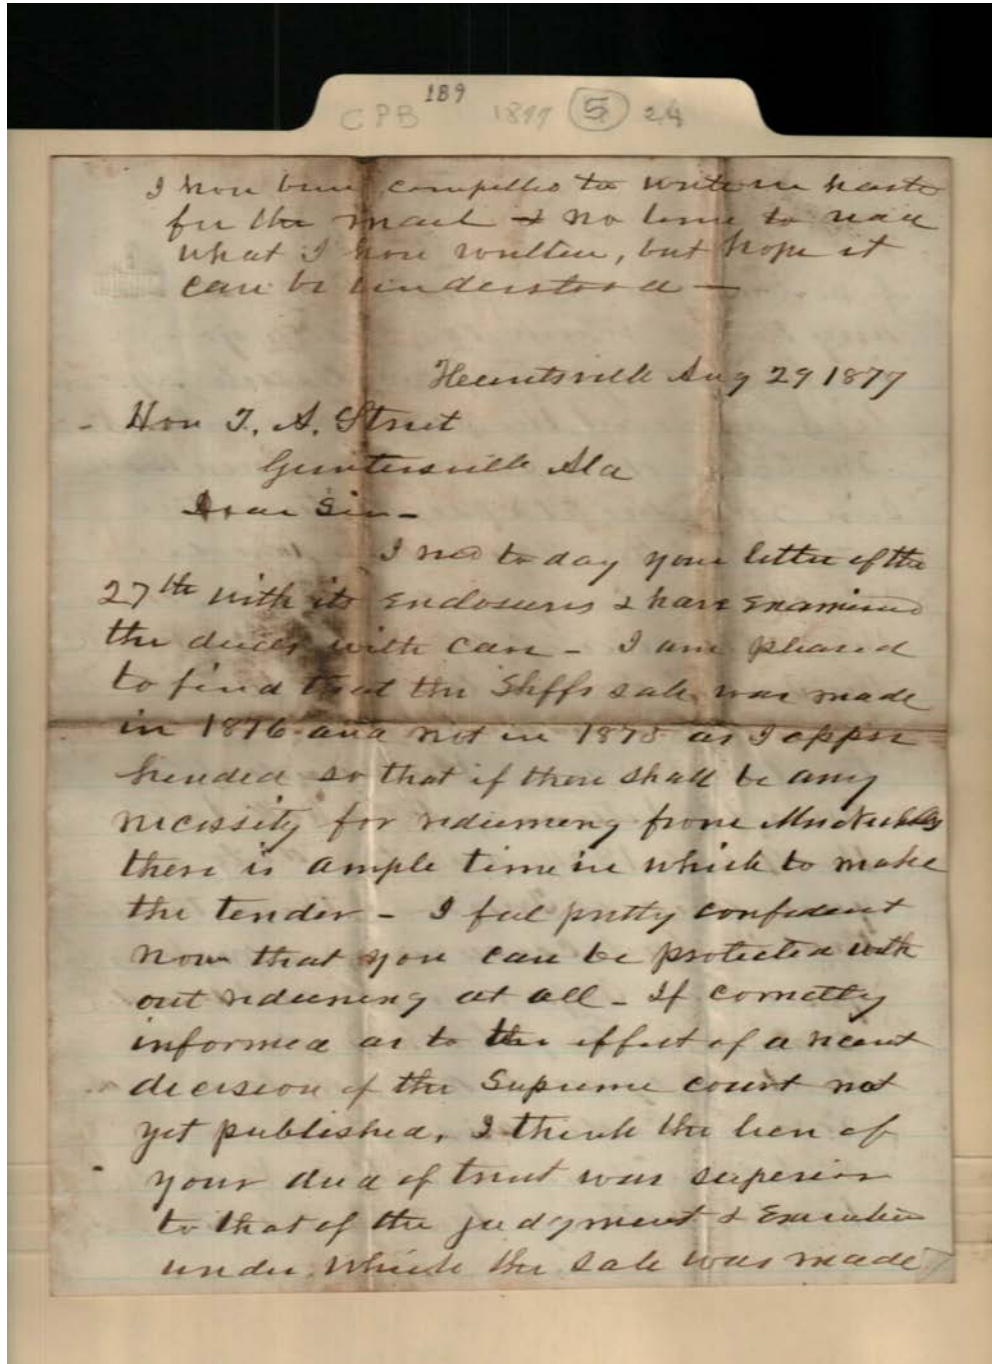 189
CPB 1877 5 24
I have been compelled to write in haste
for the mail & no time to read
what I have written, but hope it
can be understood —
Huntsville Aug 29 1877
Hon T. A. Street
Guntersville Ala
Dear Sir —
I recd to day your letter of the
27th with its enclosures & have examined
the deeds with care - I am pleased
to find that the Shffs sale was made
in 1876 and not in 1875 as I appre
hended so that if there shall be any
necessity for redeeming from
there is ample time in which to make
the tender - I feel pretty confident
now that you can be protected with
out redeeming at all - If correctly
informed as to the effect of a recent
decision of the Supreme court not
yet published, I think the lien of
your deed of trust was superior
to that of the judgment & Execution
under which the sale was made